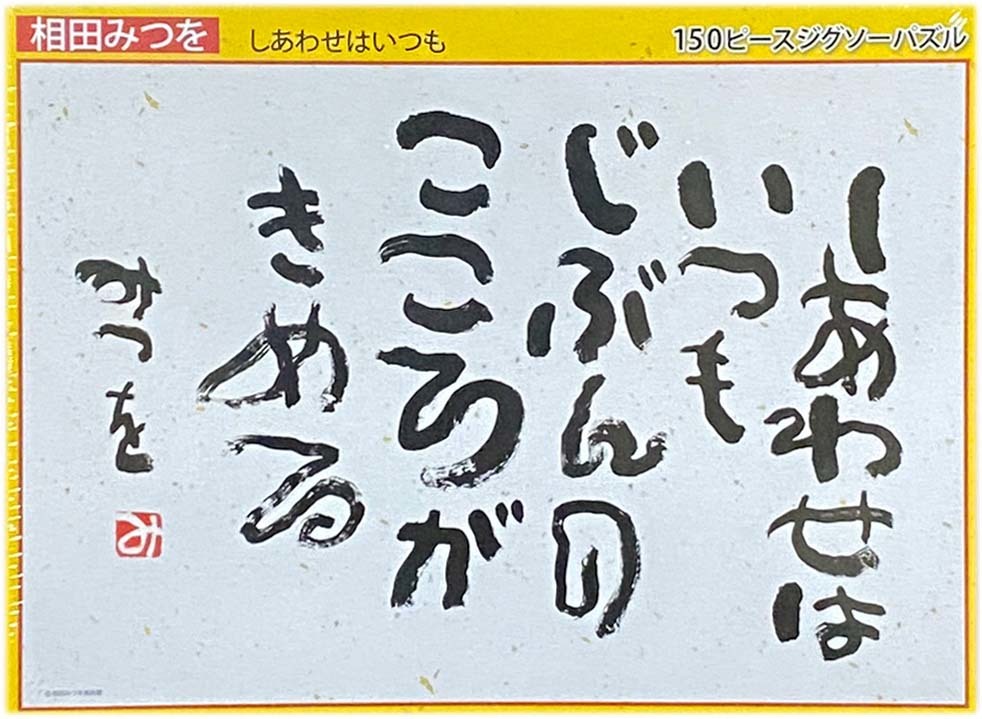 相田みつを
しあわせはいつも
150ピースジグソーパズル
しあわせは
いつも
じぶんの
こころが
きめる
みつを